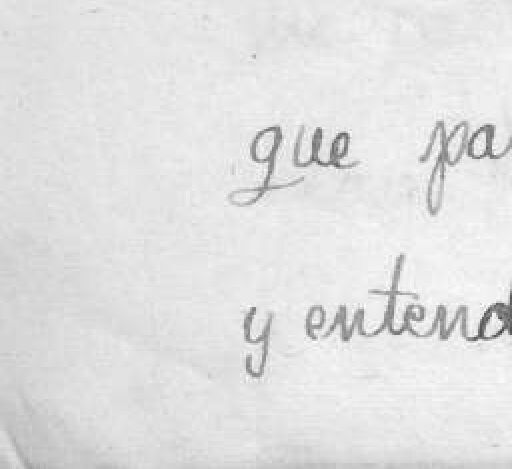 que pa
y entend